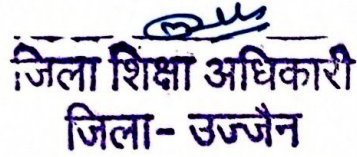 जिला शिक्षा अधिकारी
जिला- उज्जैन